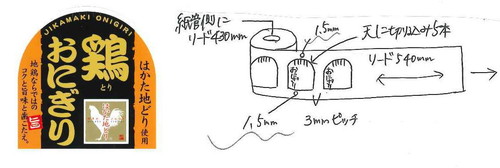 JIKAMAKI ONIGIRI
鶏
とり
おにぎり
はかた地どり使用
はかた地どり
地鶏ならではの
コクと旨味と歯ごたえ。
旨
紙管側に
リード430mm
1.5mm
天に切り込み5本
おにぎり
おにぎり
リード540mm
1.5mm
3mmピッチ